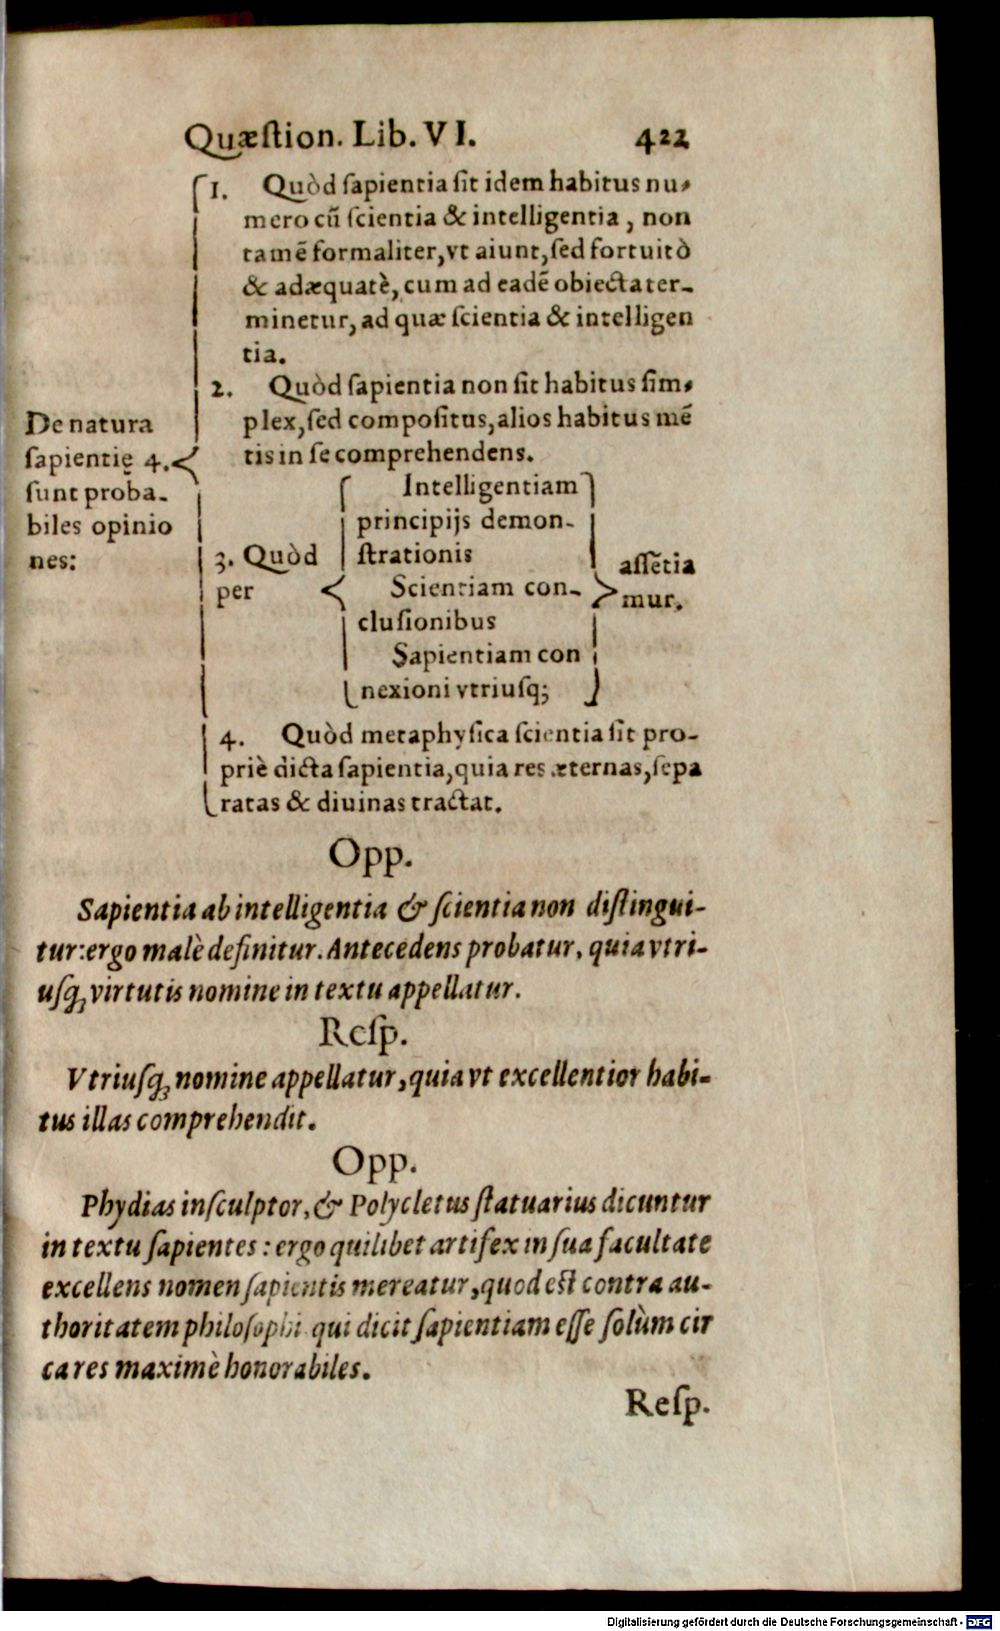 Quæſtion. Lib. VI. 422
De natura
ſapientię 4.
ſunt proba-
biles opinio
nes:
1. Quòd ſapientia ſit idem habitus nu-
mero cũ ſcientia & intelligentia, non
tamẽ formaliter, vt aiunt, ſed fortuitò
& adæquatè, cum ad eadẽ obiecta ter-
minetur, ad quæ ſcientia & intelligen
tia.
2. Quòd ſapientia non ſit habitus ſim-
plex, ſed compoſitus, alios habitus mẽ
tis in ſe comprehendens.
3. Quòd
per
Intelligentiam
principijs demon-
ſtrationis
Scientiam con-
cluſionibus
Sapientiam con
nexioni vtriuſq;
aſſẽtia
mur.
4. Quòd metaphyſica ſcientia ſit pro-
priè dicta ſapientia, quia res æternas, ſepa
ratas & diuinas tractat.
Opp.
Sapientia ab intelligentia & ſcientia non diſtingui-
tur: ergo malè definitur. Antecedens probatur, quia vtri-
uſq; virtutis nomine in textu appellatur.
Reſp.
Vtriuſq; nomine appellatur, quia vt excellentior habi-
tus illas comprehendit.
Opp.
Phydias inſculptor, & Polycletus ſtatuarius dicuntur
in textu ſapientes: ergo quilibet artifex in ſua facultate
excellens nomen ſapientis mereatur, quod eſt contra au-
thoritatem philoſophi qui dicit ſapientiam eſſe ſolùm cir
ca res maximè honorabiles.
Reſp.
Digitalisierung gefördert durch die Deutsche Forschungsgemeinschaft - DFG